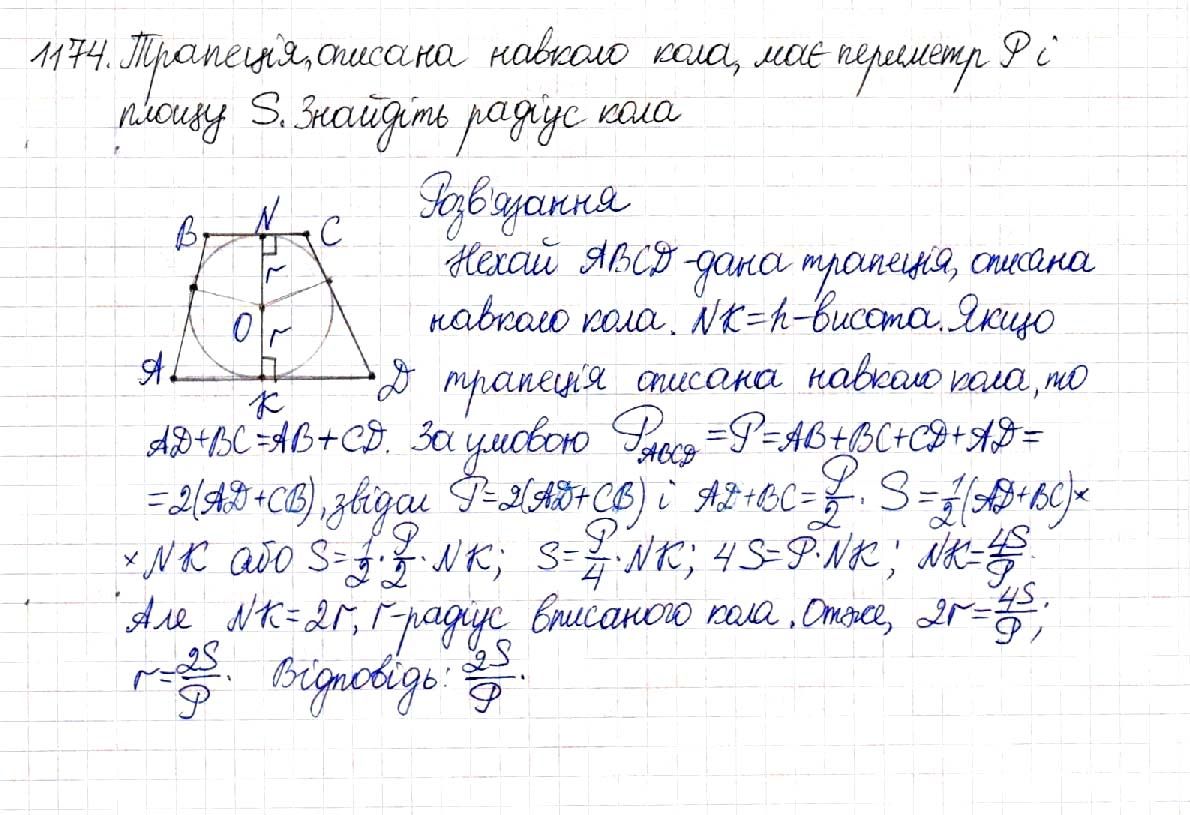 1174. Трапеція, описана навколо кола, має периметр P і
площу S. Знайдіть радіус кола
Розв'язання
B N C
r
O
r
A K D
Нехай ABCD - дана трапеція, описана
навколо кола. NK = h - висота. Якщо
трапеція описана навколо кола, то
AD+BC=AB+CD. За умовою P_ABCD = P = AB+BC+CD+AD =
= 2(AD+CB), звідси P=2(AD+CB) і AD+BC = P/2. S = 1/2(AD+BC)×
× NK або S = 1/2 · P/2 · NK; S = P/4 · NK; 4S = P·NK; NK = 4S/P.
Але NK = 2r, r - радіус вписаного кола. Отже, 2r = 4S/P;
r = 2S/P. Відповідь: 2S/P.